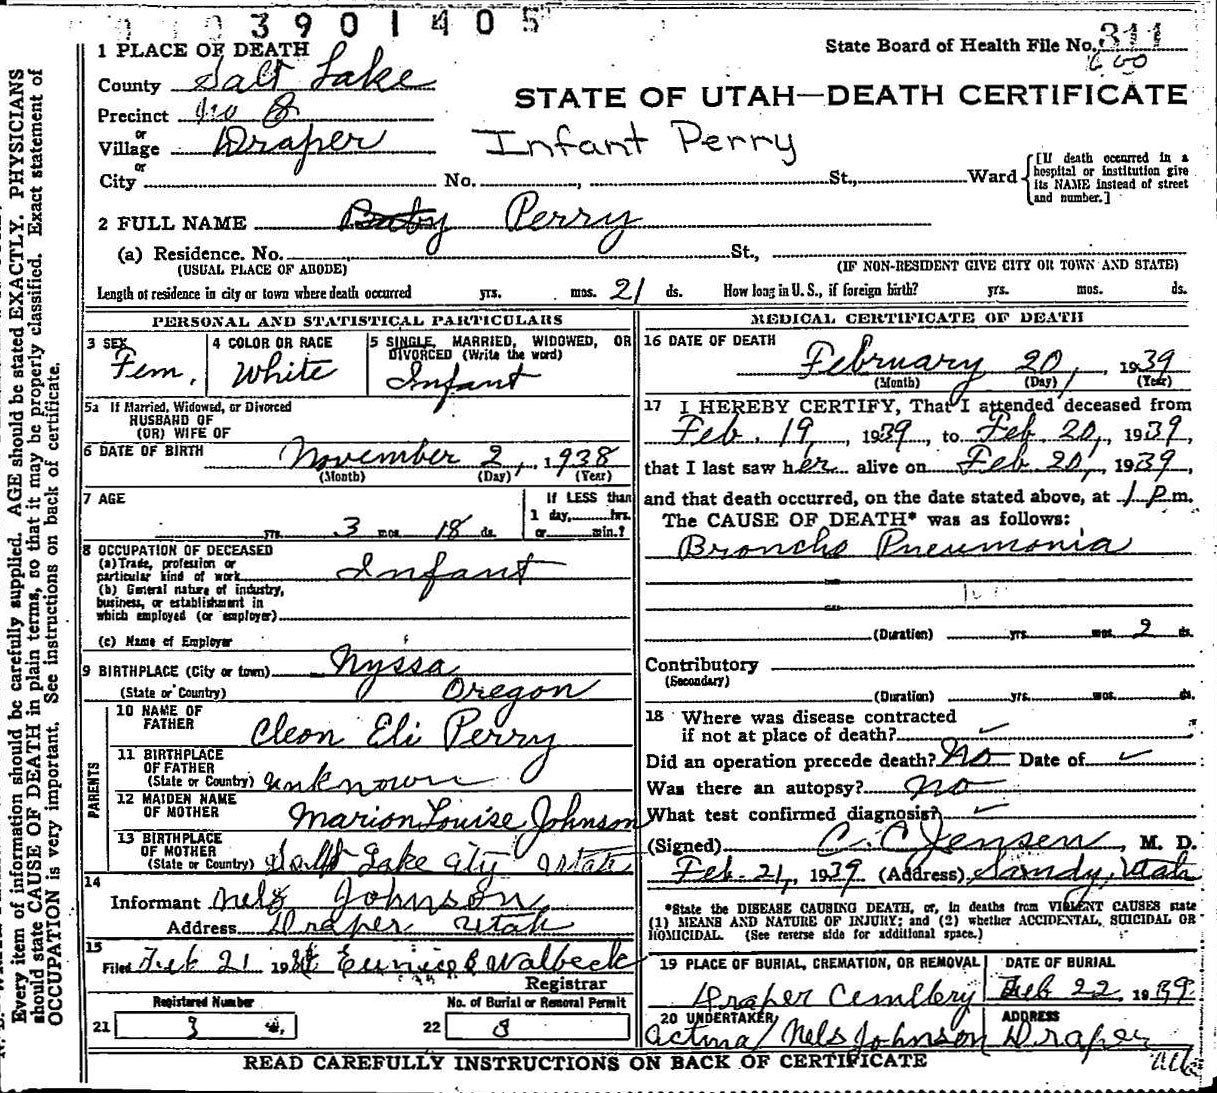 3901405
1 PLACE OF DEATH
State Board of Health File No. 311
County Salt Lake
STATE OF UTAH—DEATH CERTIFICATE
Precinct No 8
or
Village Draper
Infant Perry
or
City No. , St., Ward
[If death occurred in a hospital or institution give its NAME instead of street and number.]
2 FULL NAME Baby Perry
(a) Residence. No. St.,
(USUAL PLACE OF ABODE) (IF NON-RESIDENT GIVE CITY OR TOWN AND STATE)
Length of residence in city or town where death occurred yrs. mos. 21 ds. How long in U. S., if foreign birth? yrs. mos. ds.
PERSONAL AND STATISTICAL PARTICULARS
3 SEX Fem.
4 COLOR OR RACE White
5 SINGLE, MARRIED, WIDOWED, OR
DIVORCED (Write the word)
Infant
5a If Married, Widowed, or Divorced
HUSBAND OF
(OR) WIFE OF
6 DATE OF BIRTH November 2, 1938
(Month) (Day) (Year)
7 AGE
If LESS than
1 day, hrs.
yrs. 3 mos. 18 ds. or min.?
8 OCCUPATION OF DECEASED
(a) Trade, profession or
particular kind of work Infant
(b) General nature of industry,
business, or establishment in
which employed (or employer)
(c) Name of Employer
9 BIRTHPLACE (City or town) Nyssa
(State or Country) Oregon
PARENTS
10 NAME OF
FATHER Cleon Eli Perry
11 BIRTHPLACE
OF FATHER
(State or Country) unknown
12 MAIDEN NAME
OF MOTHER Marion Louise Johnson
13 BIRTHPLACE
OF MOTHER
(State or Country) Salt Lake City
14
Informant Nels Johnson
Address Draper Utah
15
Filed Feb 21 19 Eunice B Walbeck
Registrar
Registered Number No. of Burial or Removal Permit
21 3 22 8
MEDICAL CERTIFICATE OF DEATH
16 DATE OF DEATH
February 20, 1939
(Month) (Day) (Year)
17 I HEREBY CERTIFY, That I attended deceased from
Feb. 19, 1939, to Feb. 20, 1939,
that I last saw her alive on Feb 20, 1939,
and that death occurred, on the date stated above, at 1 p.m.
The CAUSE OF DEATH* was as follows:
Broncho Pneumonia
(Duration) yrs. mos. 2 ds.
Contributory
(Secondary)
(Duration) yrs. mos. ds.
18 Where was disease contracted
if not at place of death? ✓
Did an operation precede death? No Date of ✓
Was there an autopsy? No
What test confirmed diagnosis? ✓
(Signed) C. C. Jensen, M. D.
Feb. 21, 1939 (Address) Sandy, Utah
*State the DISEASE CAUSING DEATH, or, in deaths from VIOLENT CAUSES state
(1) MEANS AND NATURE OF INJURY; and (2) whether ACCIDENTAL, SUICIDAL OR
HOMICIDAL. (See reverse side for additional space.)
19 PLACE OF BURIAL, CREMATION, OR REMOVAL DATE OF BURIAL
Draper Cemetery Feb 22 1939
20 UNDERTAKER ADDRESS
Nels Johnson Draper
READ CAREFULLY INSTRUCTIONS ON BACK OF CERTIFICATE
Every item of information should be carefully supplied. AGE should be stated EXACTLY. PHYSICIANS
should state CAUSE OF DEATH in plain terms, so that it may be properly classified. Exact statement of
OCCUPATION is very important. See instructions on back of certificate.